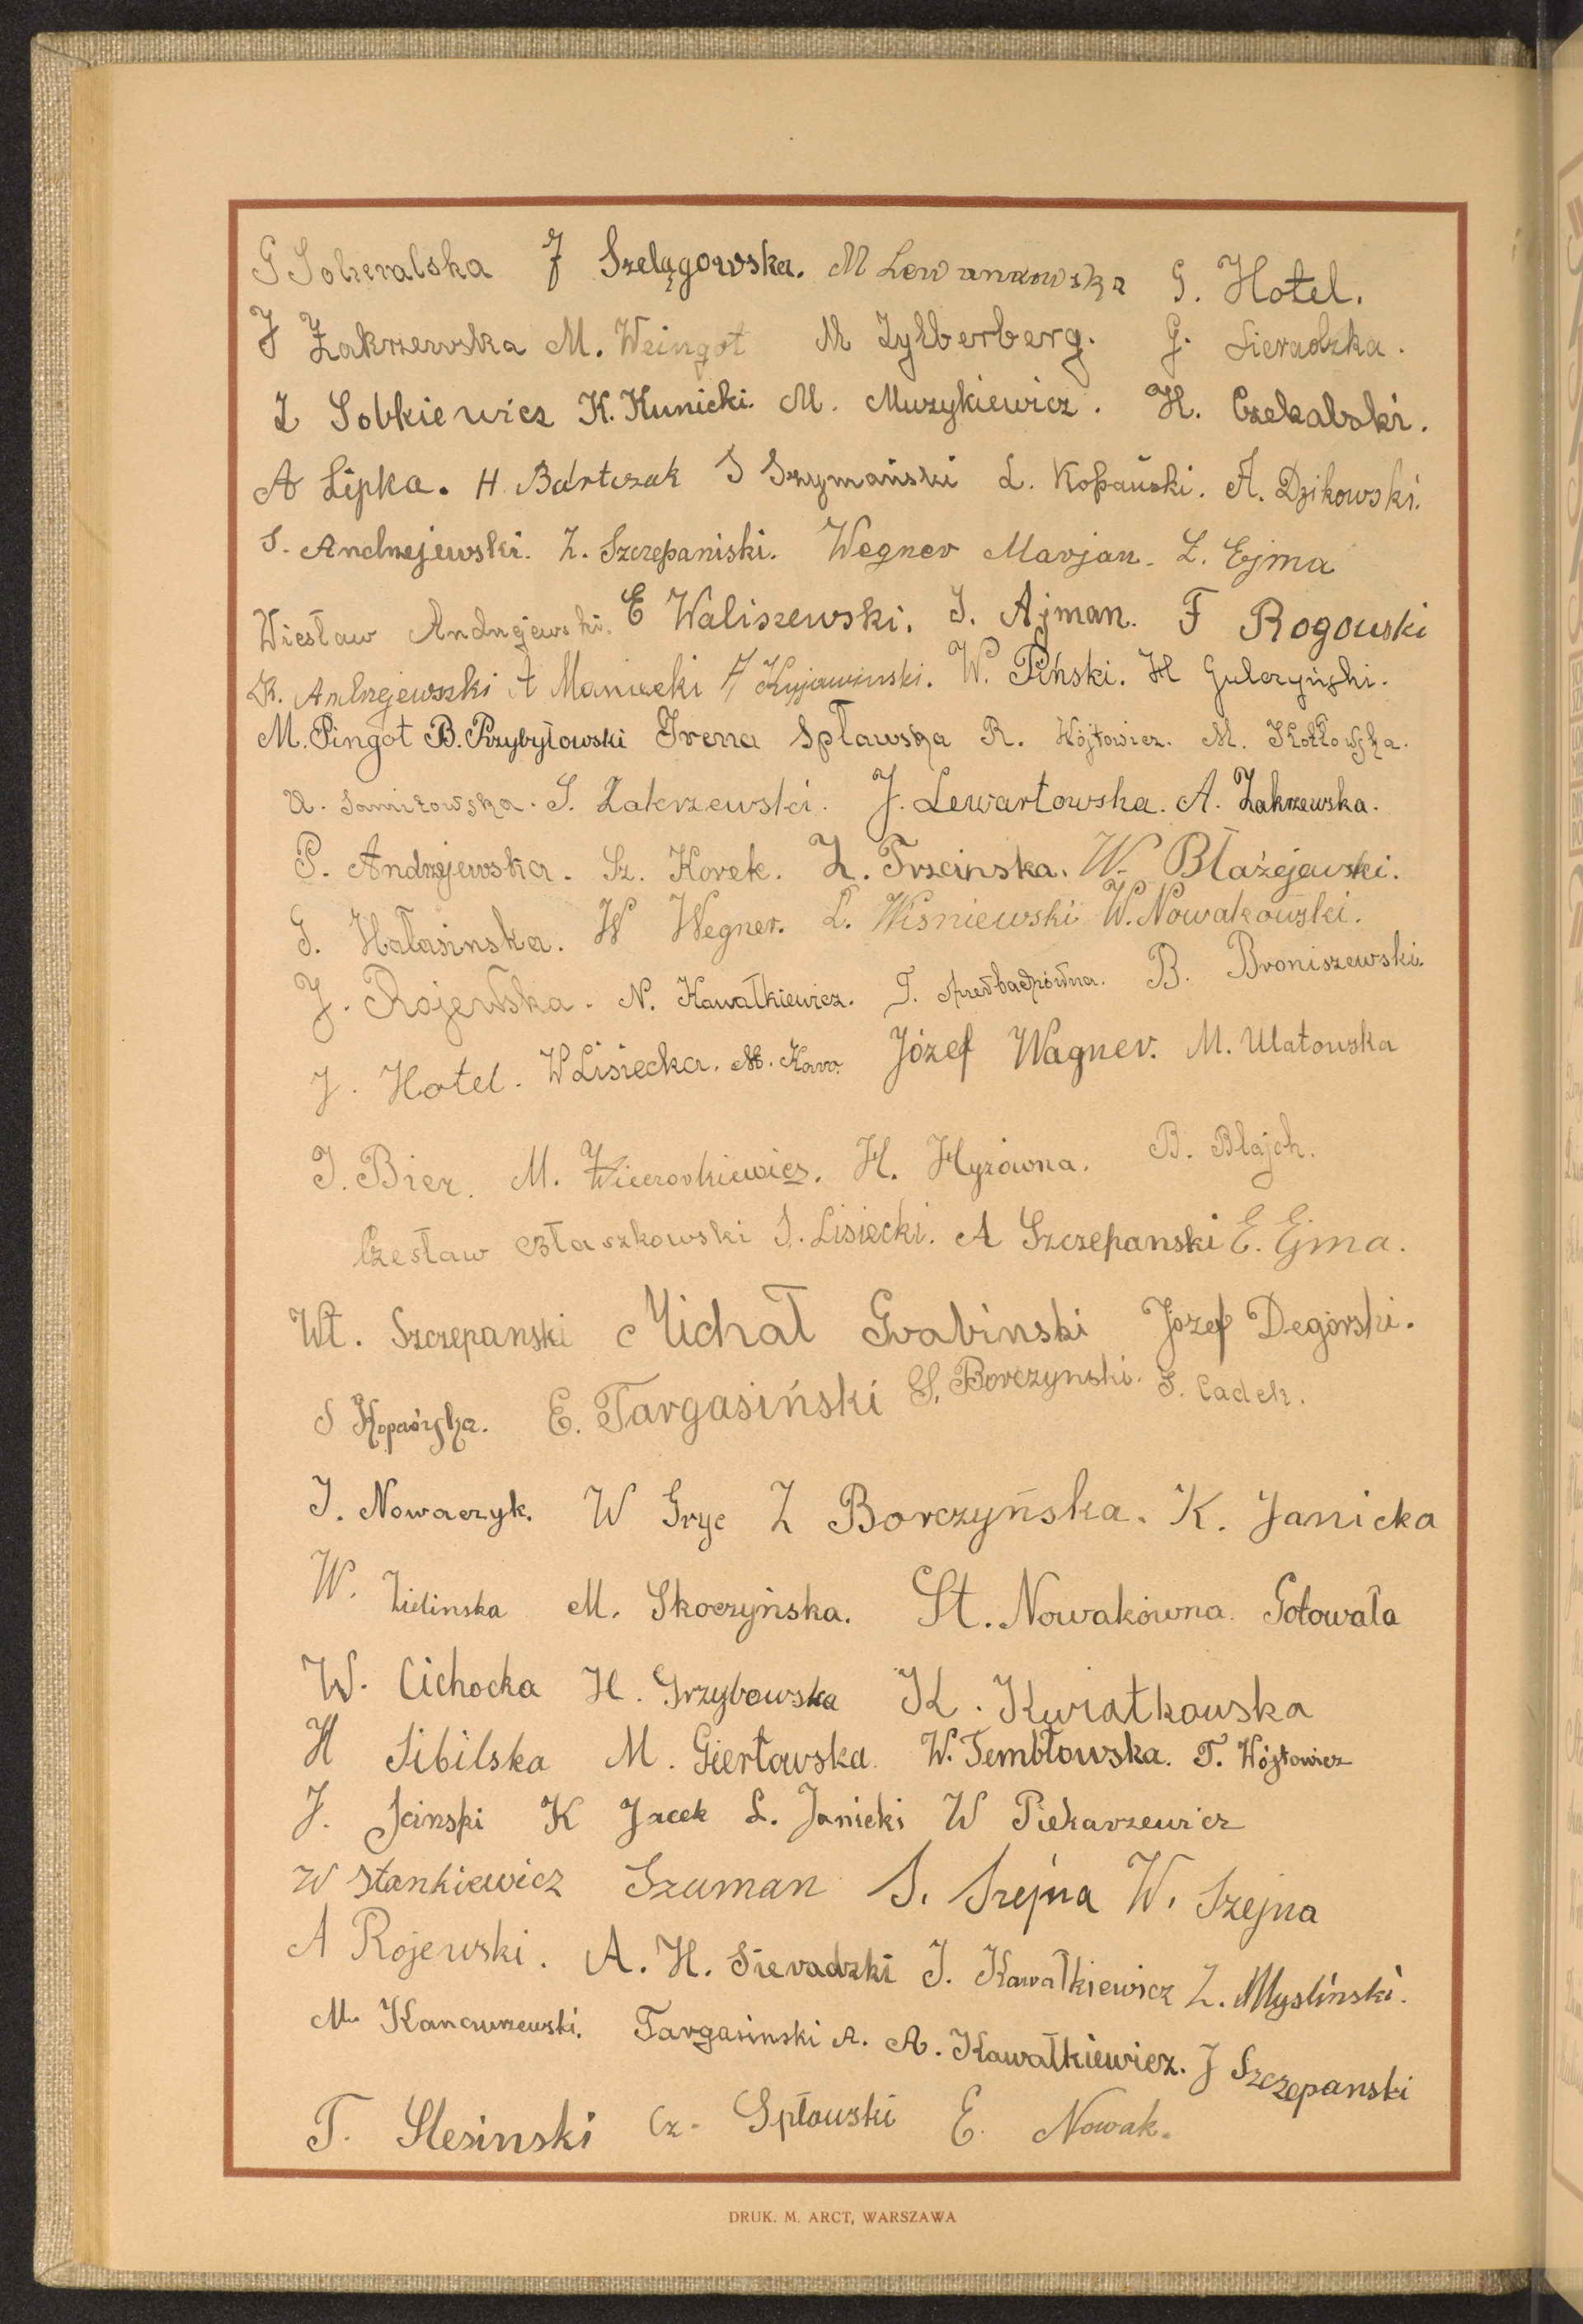 G Sobieralska J Szelągowska. M Lewandowska G. Hotel.
J Zakrzewska M. Weingot M Zylberberg. G. Sieradzka.
Z Sobkiewicz K. Kunicki. M. Muzykiewicz. H. Czekalski.
A Lipka. H. Bartczak S Szymański L. Kopański. A. Dzikowski.
S. Andrzejewski. Z. Szczepaniski. Wegner Marjan. Z. Ejma
Wiesław Andrzejewski. E Waliszewski. J. Ajman. F Rogowski
K. Andrzejewski A Maniecki Kujawinski. W. Piński. H Gulczyński.
M. Pingot B. Przybyłowski Irena Spławska R. Wójtowicz. M. Kotłowska.
S. Zakrzewski. J. Lewartowska. A. Zakrzewska.
P. Andrzejewska. Sz. Korek. Z. Trzcinska. W. Błażejewski.
G. Hałasinska. W Wegner. L. Wisniewski W. Nowakowski.
J. Rojewska. N. Kawałkiewicz. B. Broniszewski.
J. Hotel. W Lisiecka. Józef Wagner. M. Ulatowska
J. Bier. M. Wieczorkiewicz. H. Hyzówna. B. Blajch.
Czesław Błaszkowski S. Lisiecki. A Szczepanski E. Ejma.
Wł. Szczepanski Michał Grabinski Józef Degórski.
S Kopańska. E. Targasiński S. Borczynski. S. Cadek.
J. Nowaczyk. W Gryc Z Borczyńska. K. Janicka
W. Zielinska M. Skoczyńska. St. Nowakówna. Gotowała
W. Cichocka H. Grzybowska K. Kwiatkowska
H Sibilska M. Giertowska. W. Tembłowska. T. Wójtowicz
J. Jcinski K Jacek L. Janicki W Piekarzewicz
W Stankiewicz Szuman S. Szejna W. Szejna
A Rojewski. A. H. Sieradzki J. Kawałkiewicz Z. Myslinski.
M. Kancurzewski. Targasinski A. A. Kawałkiewicz. J Szczepanski
T. Slesinski Cz. Spłowski E. Nowak.
DRUK. M. ARCT, WARSZAWA